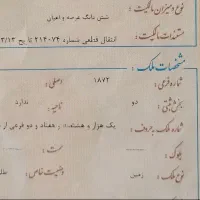 نوع و میزان مالکیت :
شش دانگ عرصه و اعیان
مستندات مالکیت :
انتقال قطعی شماره ۴۱۴۰۷۴ تاریخ
مشخصات ملک :
شماره فرعی : ۱۸۷۲ اصلی :
بخش ثبتی : دو ناحیه : ندارد
شماره ملک بحروف : یک هزار و هشتصد و هفتاد و دو فرعی از
بلوک : سمت :
نوع ملک : زمین وضعیت خاص :